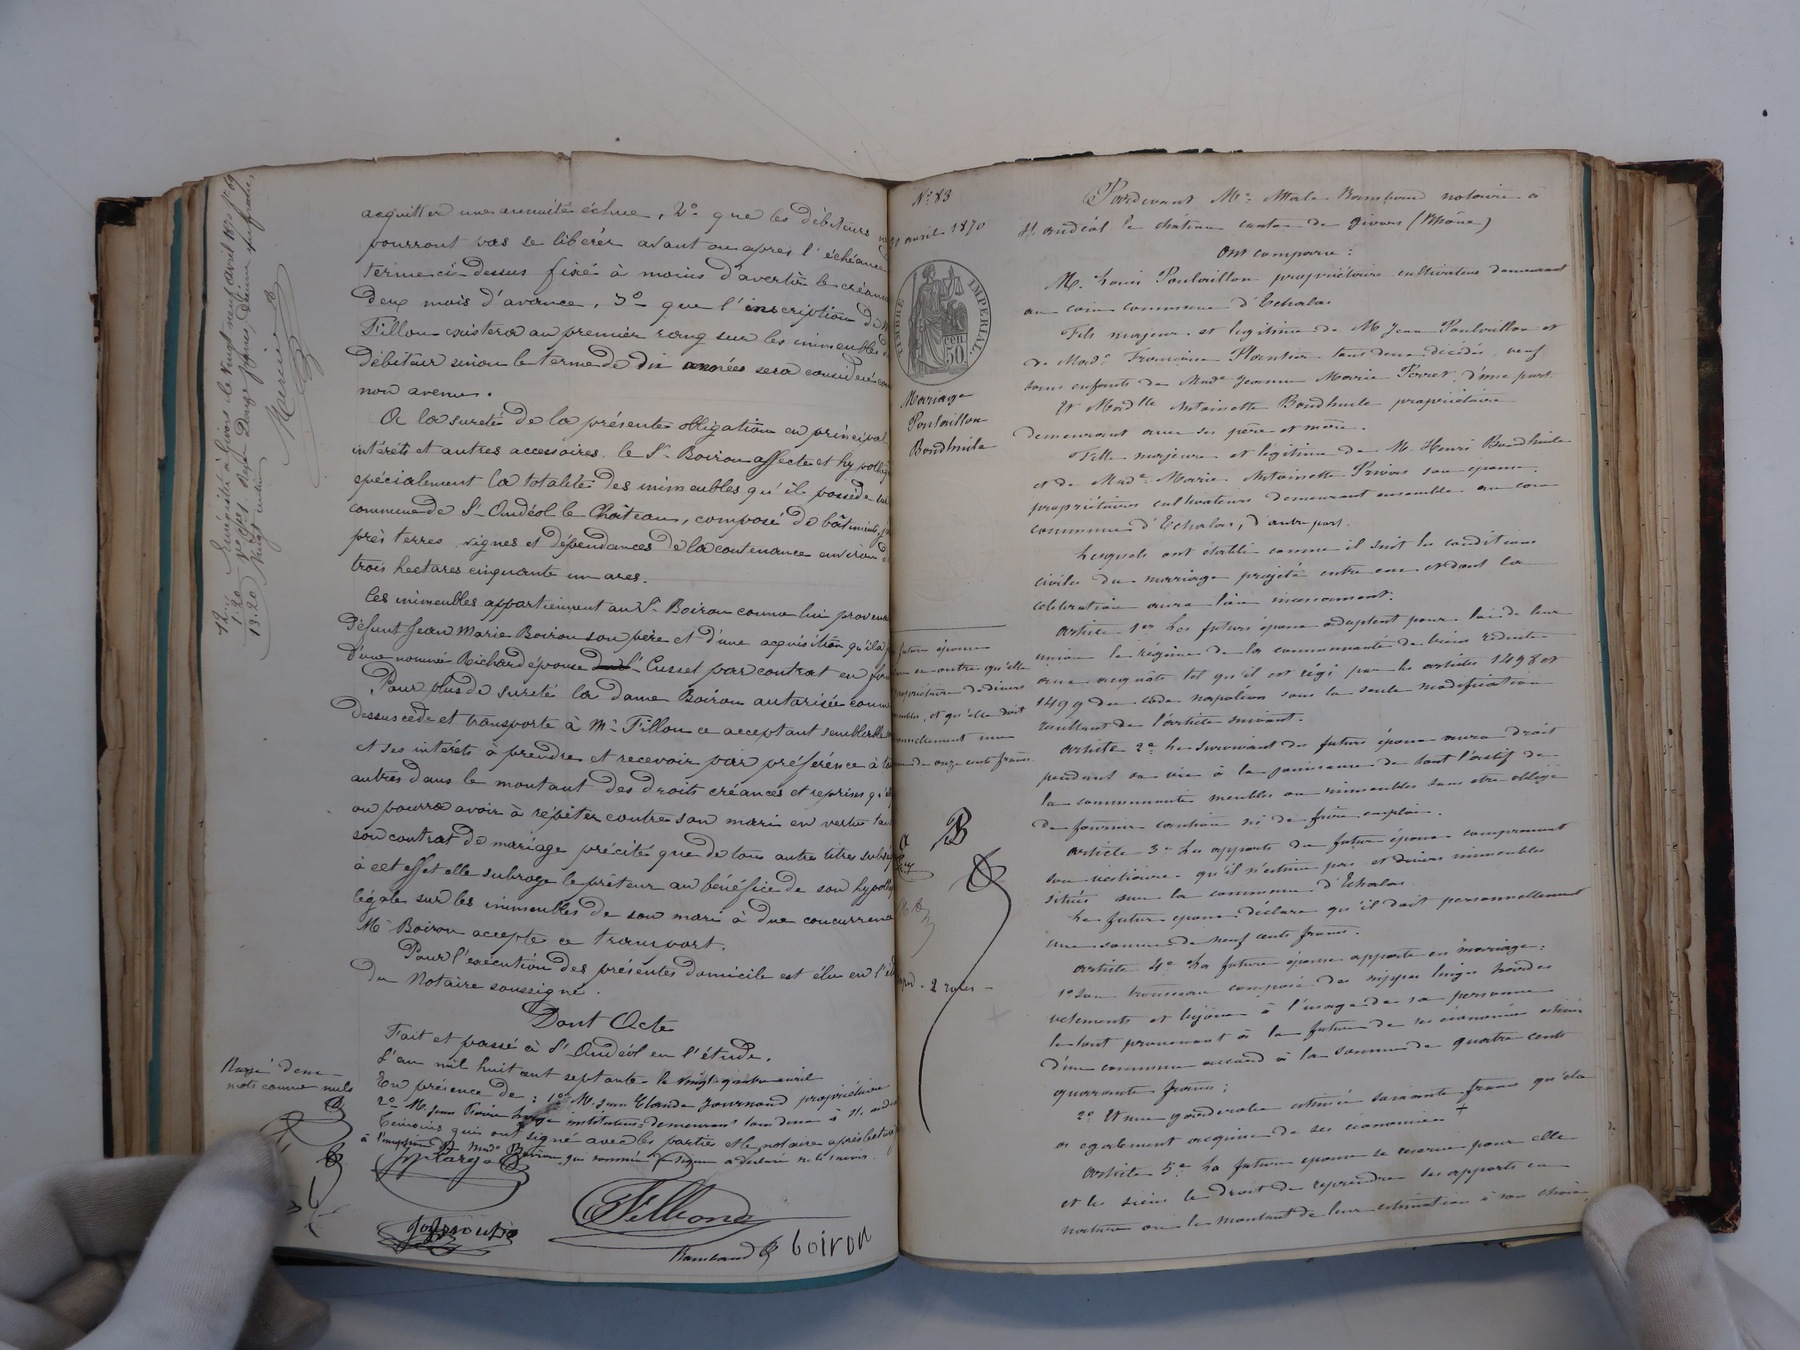 acquitter une annuité échue, 2° que les débiteurs ne
pourront pas se libérer avant ou après l'échéance
terme ci-dessus fixé à moins d'avertir le créancier
deux mois d'avance, 3° que l'inscription de M
Fillon existera au premier rang sur les immeubles du
débiteur sinon le terme de dix années sera considéré comme
non avenu.
A la sureté de la présente obligation en principal
intérêts et autres accessoires le Sr Boiron affecte et hypothèque
spécialement la totalité des immeubles qu'il possède
commune de St Andéol le Château, composé de bâtiments,
près terres vignes et dépendances de la contenance environ de
trois hectares cinquante un ares.
Ces immeubles appartiennent au Sr Boiron comme lui provenant
défunt Jean Marie Boiron son père et d'une acquisition qu'il a
d'une nommée Richard épouse Cusset par contrat en
Pour plus de sureté la dame Boiron autorisée comme
dessus cède et transporte à Mr Fillon ce acceptant semblable
et ses intérêts à prendre et recevoir par préférence à
autres dans le montant des droits créances et reprises qu'
ou pourra avoir à répéter contre son mari en vertu tant
son contrat de mariage précité que de tous autres titres
à cet effet elle subroge le prêteur au bénéfice de son
légale sur les immeubles de son mari à due concurrence
Mr Boiron accepte ce transport.
Pour l'exécution des présentes domicile est élu en l'
du Notaire soussigné.
Dont Acte
Fait et passé à St Andéol en l'étude.
L'an mil huit cent septante le vingt quatre avril
En présence de: 1° M. Jean Claude Journoud propriétaire
2° M. Jean Pierre instituteur demeurant tous deux à St
Témoins qui ont signé avec les parties et le notaire après lecture
à l'exception de Made Boiron, qui sommée de signer a déclaré ne le savoir.
Fillon
Rambaud
boiron
Rayé deux
mots comme nuls
Enregistré à Givors le vingt neuf avril 1870 fo 69
Ve c. 1. Reçu Douze francs, décime un franc
Vingt centimes
12 "
1.20
13.20
N° 83
avril 1870
TIMBRE IMPÉRIAL
50 cen
Mariage
Poulaillon
Bondhuile
future épouse
en outre qu'elle
propriétaire de divers
et qu'elle doit
personnellement une
de onze cents francs
2 roles
Pardevant Me Merle Rambaud notaire à
St Andéol le château canton de Givors (Rhône)
Ont comparu:
M. Louis Poulaillon propriétaire cultivateur demeurant
au coin commune d'Echalas
Fils majeur et légitime de M Jean Poulaillon et
de Made Françoise Plantier tous deux décédés, veuf
sans enfants de Made Jeanne Marie Perret, d'une part
Et Madlle Antoinette Bondhuile propriétaire
demeurant avec ses père et mère.
Fille majeure et légitime de M. Henri Bondhuile
et de Made Marie Antoinette Privas son épouse,
propriétaires cultivateurs demeurant ensemble au coin
commune d'Echalas, d'autre part.
Lesquels ont établi comme il suit les conditions
civiles du mariage projeté entre eux et dont la
celebration aura lieu incessamment.
Article 1er Les futurs époux adoptent pour loi de leur
union le régime de la communauté de biens réduite
aux acquêts tel qu'il est régi par les articles 1498 et
1499 du code napoléon sous la seule modification
résultant de l'article suivant.
Article 2e Le survivant des futurs époux aura droit
pendant sa vie à la jouissance de tout l'actif de
la communauté meubles ou immeubles sans etre obligé
de fournir caution ni de faire emploi.
Article 3e Les apports du futur époux comprennent
son vestiaire qu'il n'estime pas et divers immeubles
situés sur la commune d'Echalas.
Le futur époux déclare qu'il doit personnellement
une somme de neuf cents francs.
Article 4e La future épouse apporte en mariage:
1° Son trousseau composé de nippes linges hardes
vetements et bijoux à l'usage de sa personne
le tout provenant à la future de ses économies estimé
d'un commun accord à la somme de quatre cents
quarante francs;
2° Et une garderobe estimée soixante francs qu'elle
a egalement acquise de ses économies +
Article 5e La future épouse se reserve pour elle
et les siens le droit de reprendre ses apports en
nature ou le montant de leur estimation à son choix